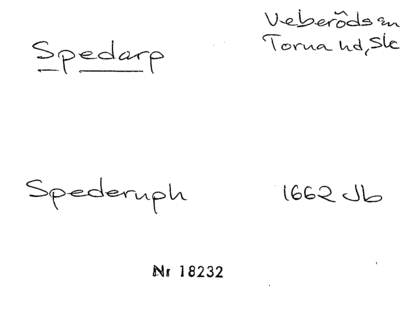 Spedarp
Veberöds sn
Torna hd, Sk
Spederuph 1662 Jb
Nr 18232